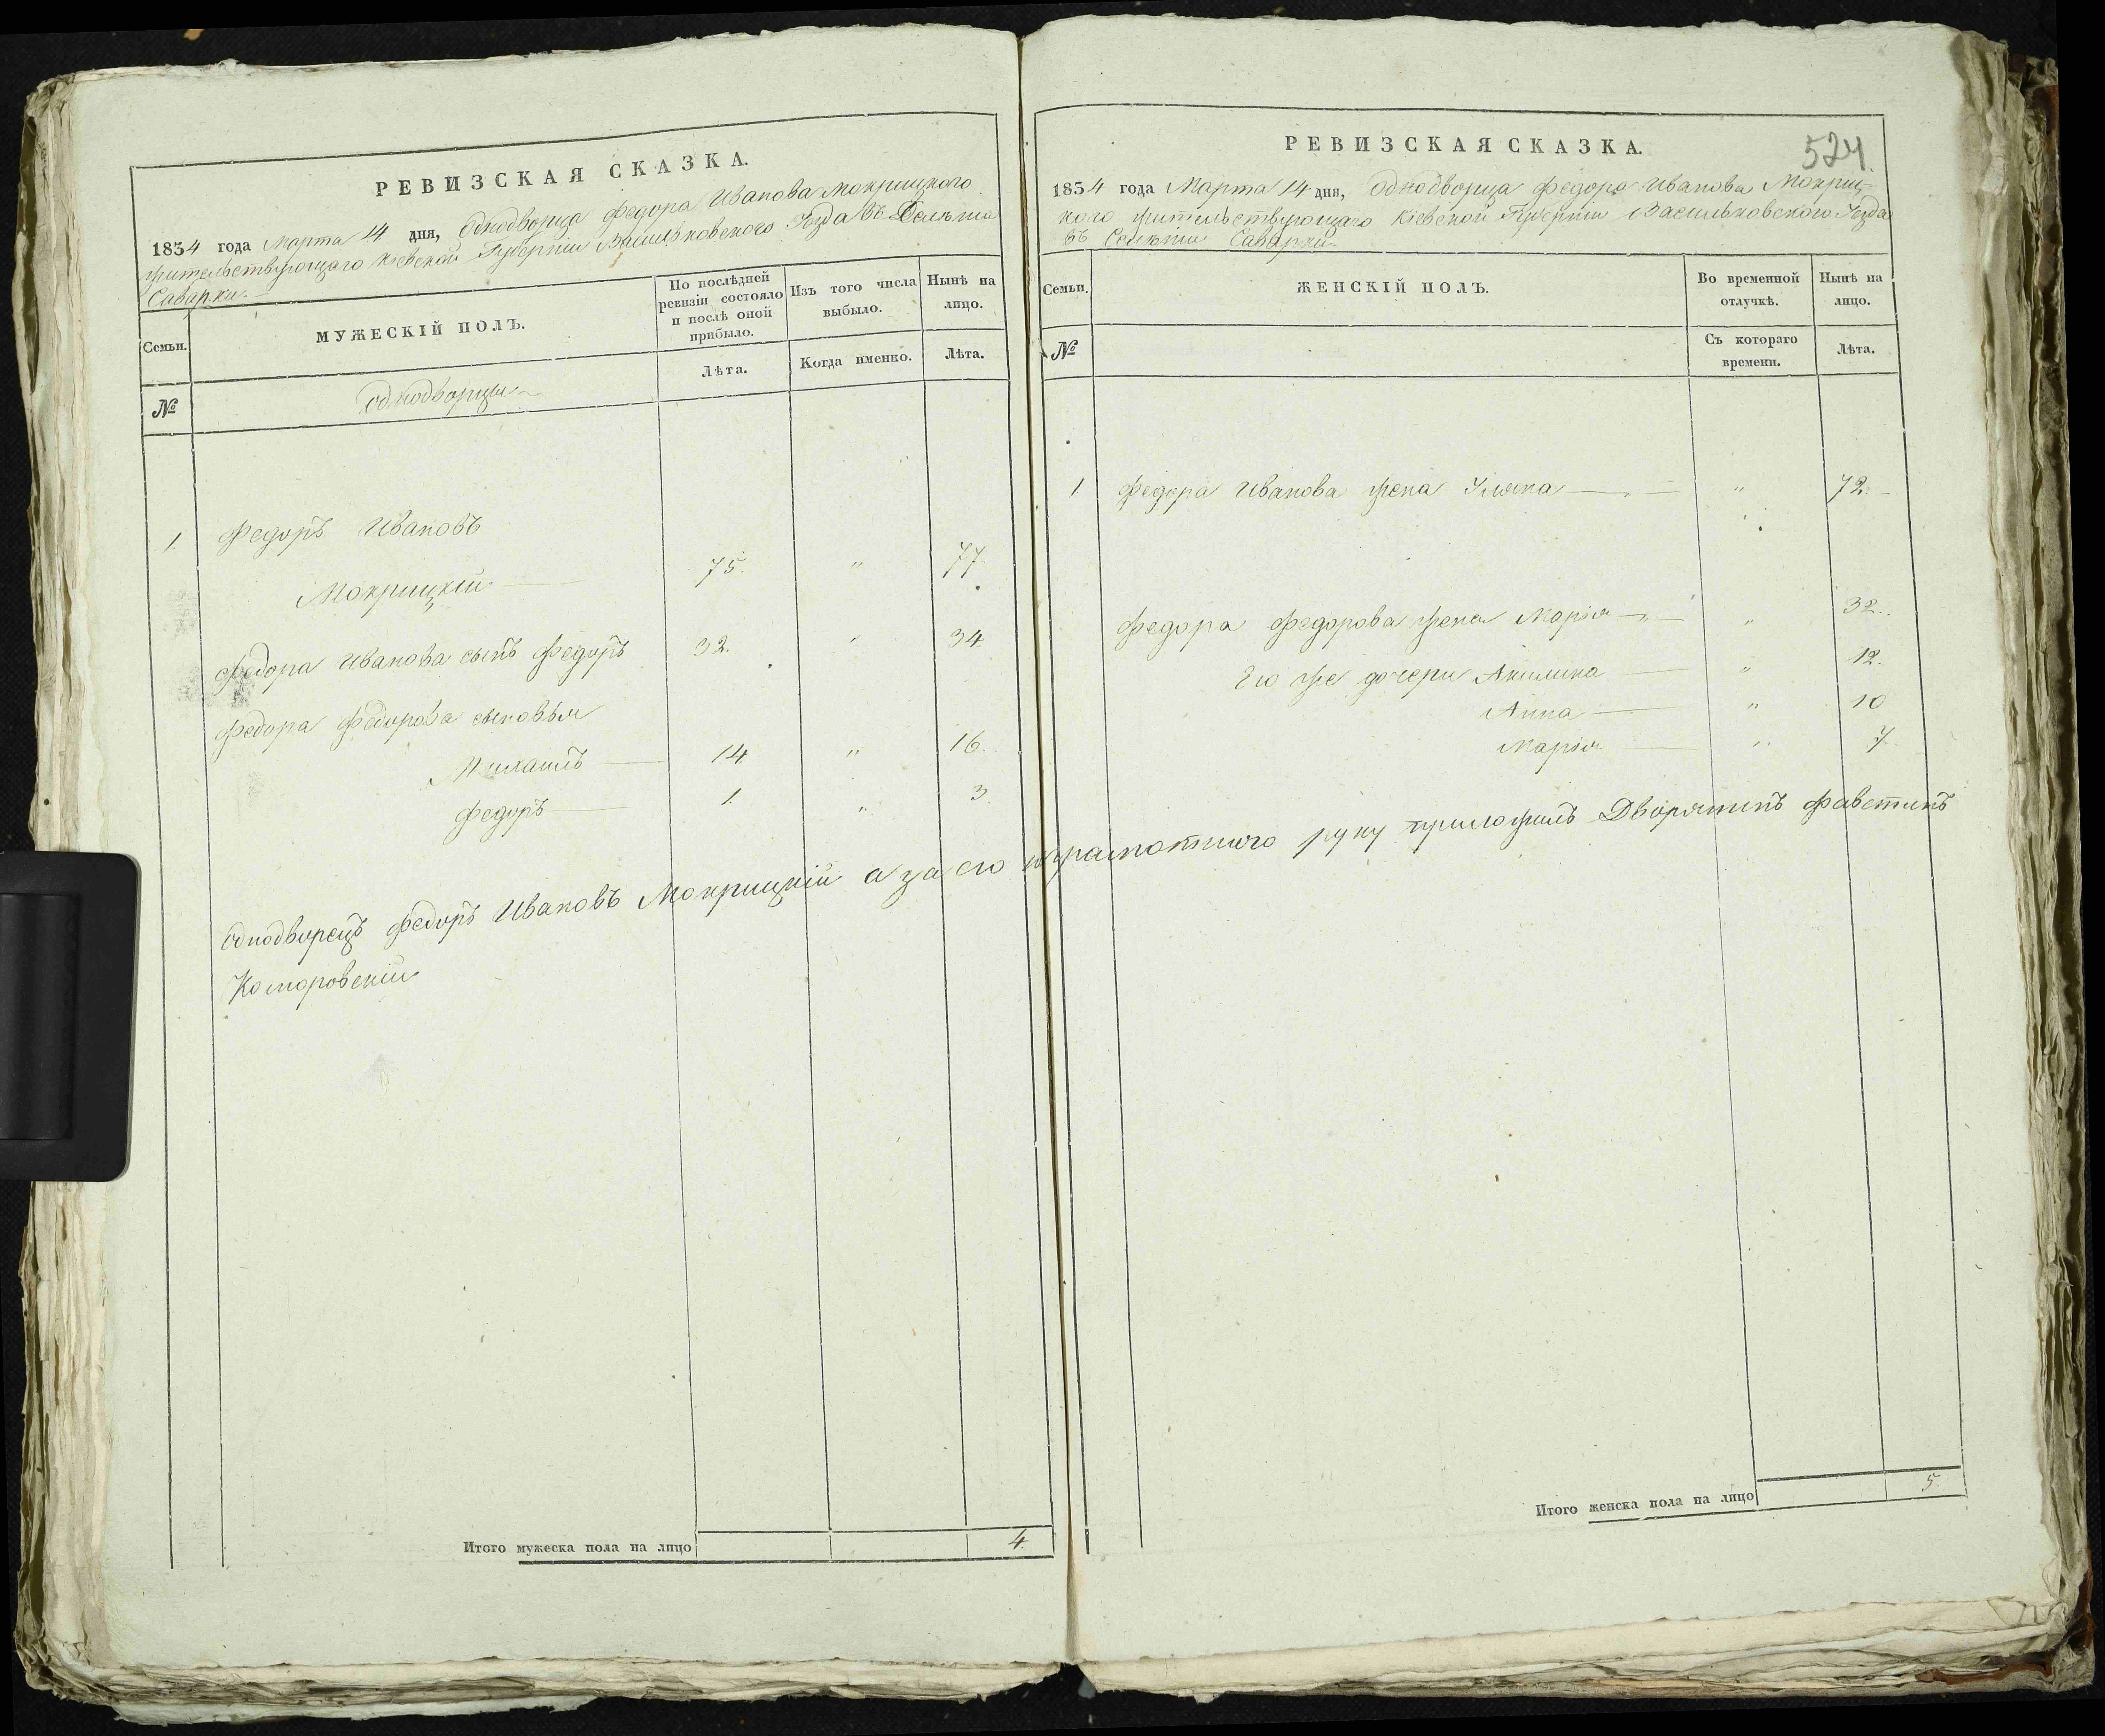 РЕВИЗСКАЯ СКАЗКА.
1834 года Марта 14 дня, Однодворца Федора Иванова Мокрицкого
жительствующаго Кіевской Губерніи Васильковскаго Уезда Въ Селѣніи
Саварки.
Семьи.
МУЖЕСКІЙ ПОЛЪ.
По послѣдней
ревизіи состояло
и послѣ оной
прибыло.
Изъ того числа
выбыло.
Нынѣ на
лицо.
№
однодворцы
Лѣта.
Когда именно.
Лѣта.
1. Федоръ Ивановъ
Мокрицкій 75. " 77
Федора Иванова сынъ Федоръ 32. " 34
Федора Федорова сыновья
Михаилъ 14 " 16.
Федоръ 1. " 3.
Однодворецъ Федоръ Ивановъ Мокрицкій а за его неграмотного руку приложилъ Дворянинъ Фавстинъ
Коморовскій
Итого мужеска пола на лицо 4.
РЕВИЗСКАЯ СКАЗКА.
524.
1834 года Марта 14 дня, Однодворца Федора Иванова Мокриц-
кого жительствующаго Кіевской Губерніи Васильковского Уезда
въ Селѣніи Саварки.
Семьи.
ЖЕНСКІЙ ПОЛЪ.
Во временной
отлучкѣ.
Нынѣ на
лицо.
№
Съ котораго
времени.
Лѣта.
1. Федора Иванова жена Уляна " 72.
Федора Федорова жена Марія " 32.
Его же дочери Акилина " 12.
Анна " 10
Марія " 7.
Итого женска пола на лицо 5.